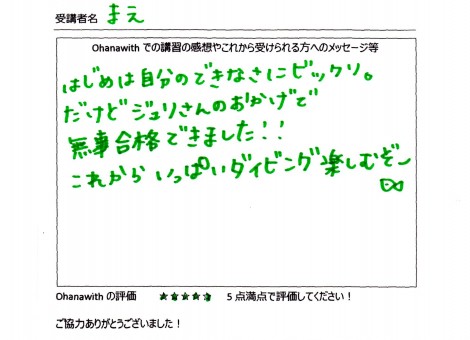 受講者名 まえ
Ohanawith での講習の感想やこれから受けられる方へのメッセージ等
はじめは自分のできなさにビックリ。
だけどジュリさんのおかげで
無事合格できました!!
これから いっぱいダイビング楽しむぞ〜
Ohanawith の評価 ★★★★★ 5 点満点で評価してください!
ご協力ありがとうございました!